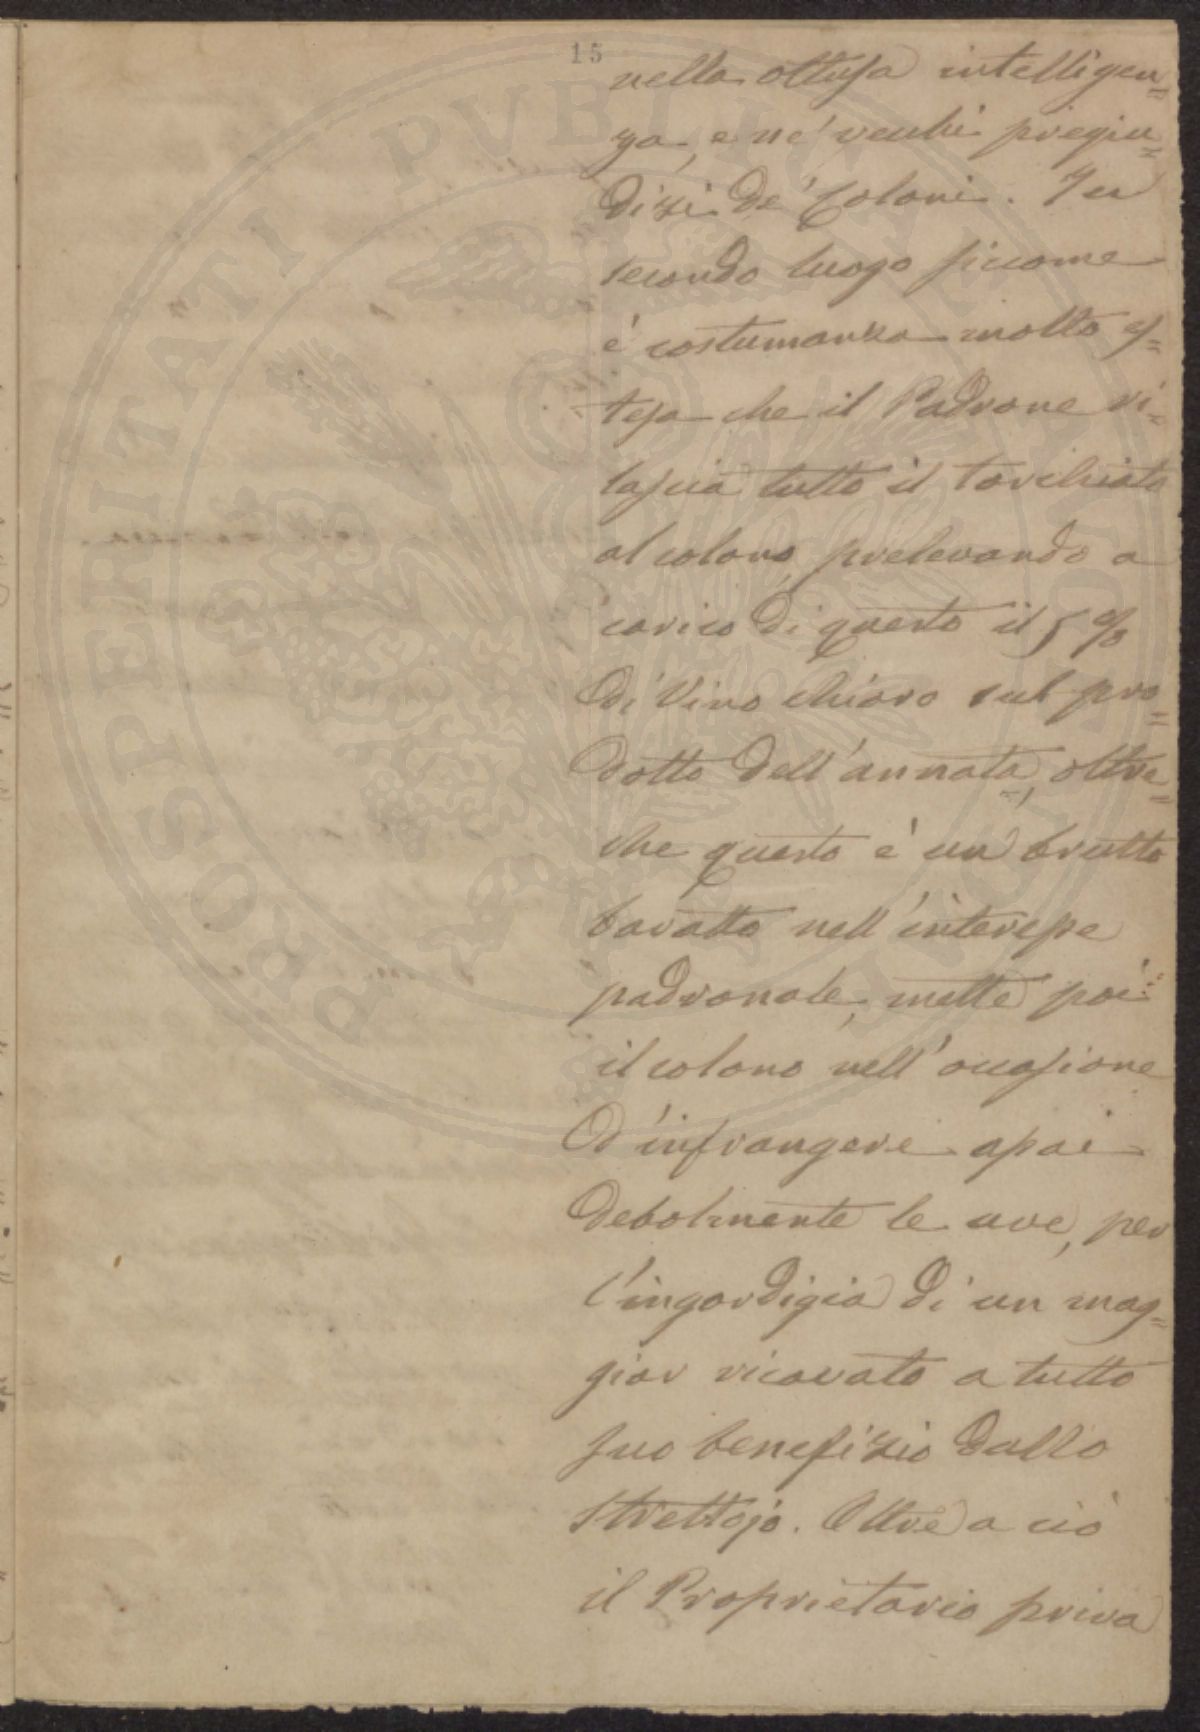 15
nella ottusa intelligen=
za, e ne' vecchi pregiu=
dizi de' Coloni. In
secondo luogo siccome
è costumanza molto es=
tesa che il Padrone ri=
lascia tutto il torchiato
al colono, prelevando a
carico di questo il 5 %
di Vino chiaro sul pro=
dotto dell'annata, oltre=
che questo è un brutto
baratto nell'interesse
padronale, mette poi
il colono nell'occasione
d'infrangere assai
debolmente le uve, per
l'ingordigia di un mag=
gior ricavato a tutto
suo benefizio dallo
Strettojo. Oltre a ciò
il Proprietario priva
PROSPERITATI PVBLICAE